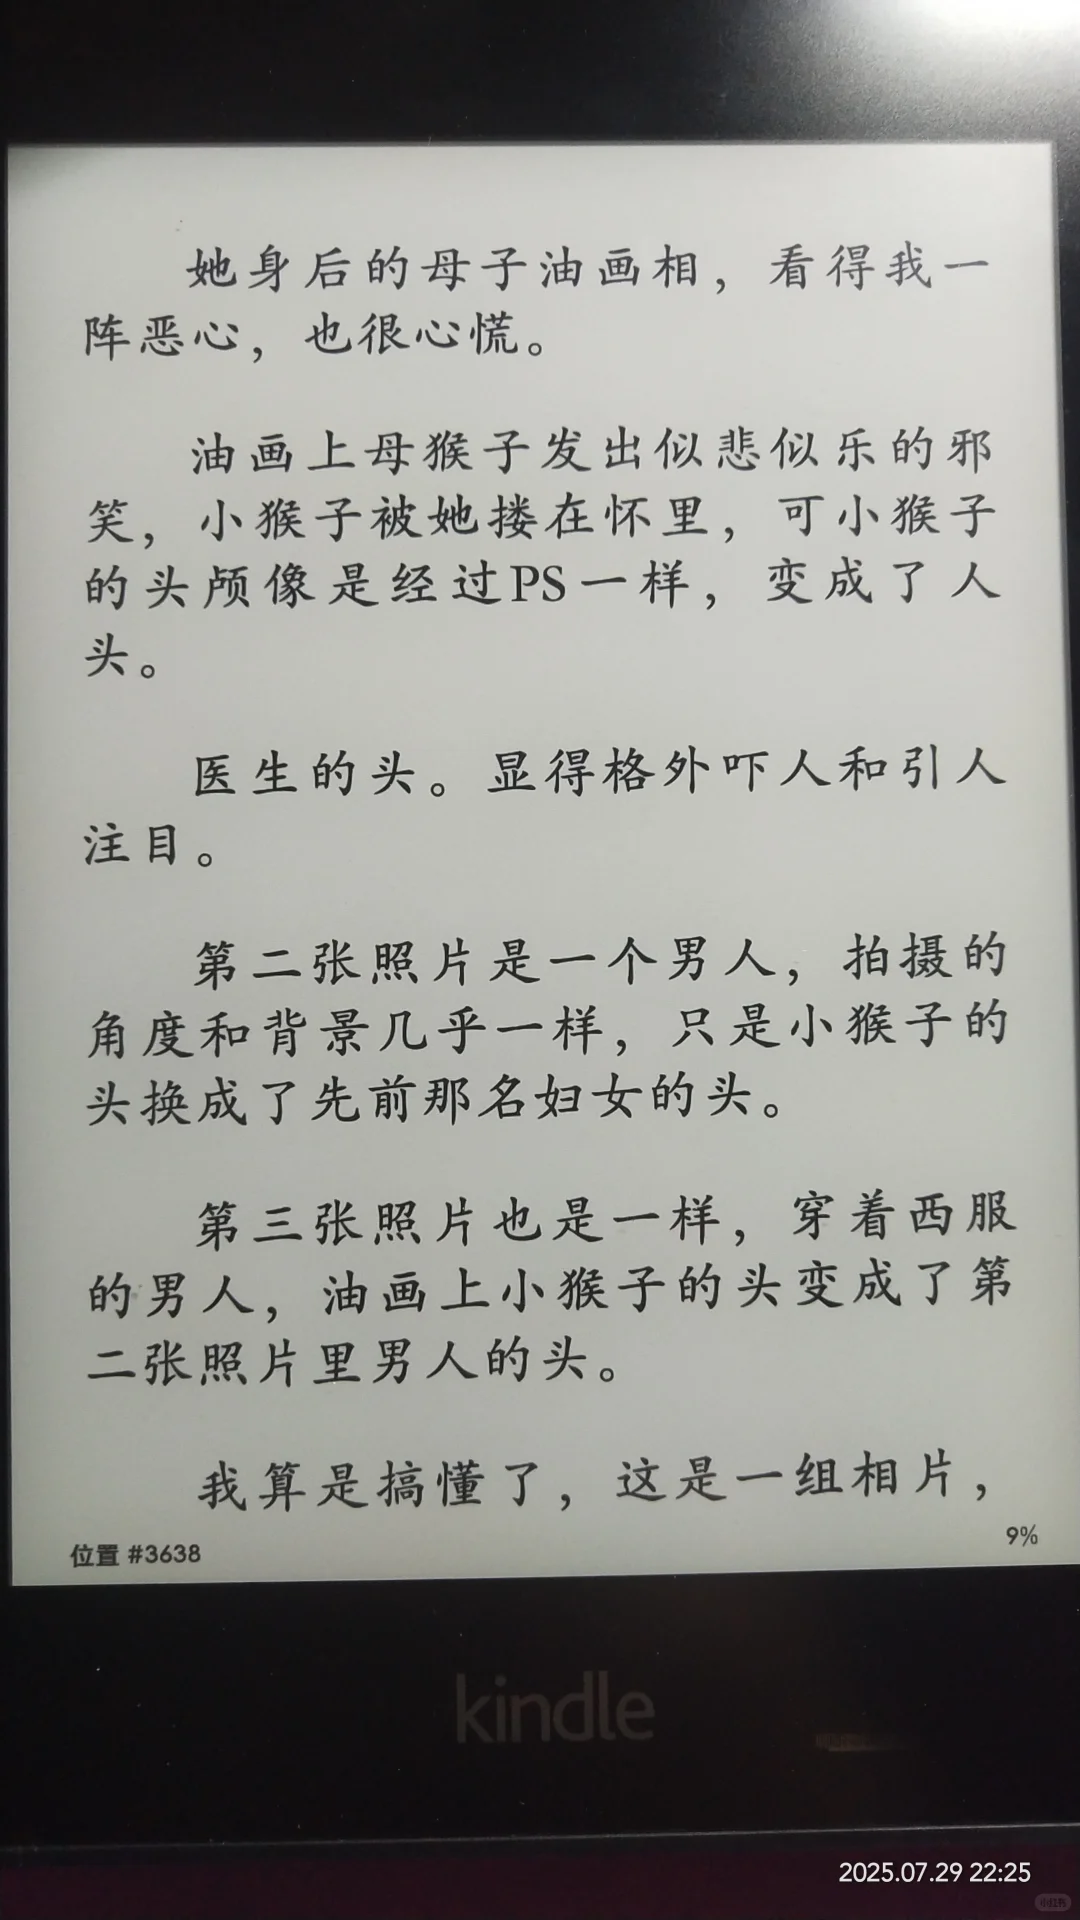 她身后的母子油画相，看得我一
阵恶心，也很心慌。
油画上母猴子发出似悲似乐的邪
笑，小猴子被她搂在怀里，可小猴子
的头颅像是经过PS一样，变成了人
头。
医生的头。显得格外吓人和引人
注目。
第二张照片是一个男人，拍摄的
角度和背景几乎一样，只是小猴子的
头换成了先前那名妇女的头。
第三张照片也是一样，穿着西服
的男人，油画上小猴子的头变成了第
二张照片里男人的头。
我算是搞懂了，这是一组相片，
位置 #3638
9%
kindle
2025.07.29 22:25
小红书